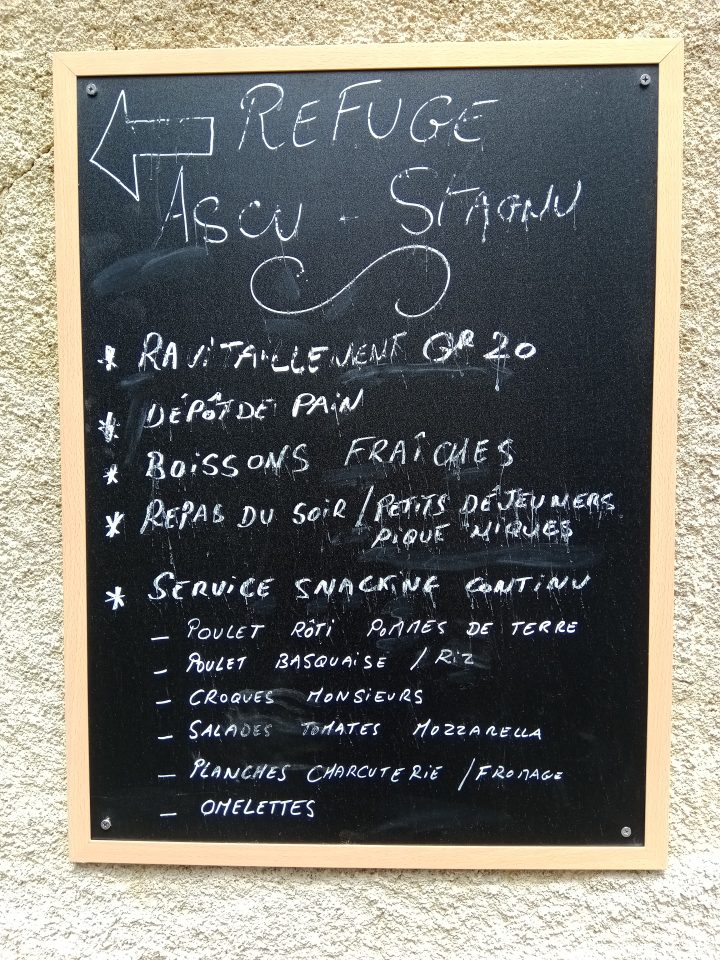 REFUGE
ASCU - STAGNU
* RAVITAILLEMENT GR 20
* DÉPÔT DE PAIN
* BOISSONS FRAÎCHES
* REPAS DU SOIR / PETITS DÉJEUNERS
PIQUE NIQUES
* SERVICE SNACKING CONTINU
- POULET RÔTI POMMES DE TERRE
- POULET BASQUAISE / RIZ
- CROQUES MONSIEURS
- SALADES TOMATES MOZZARELLA
- PLANCHES CHARCUTERIE / FROMAGE
- OMELETTES